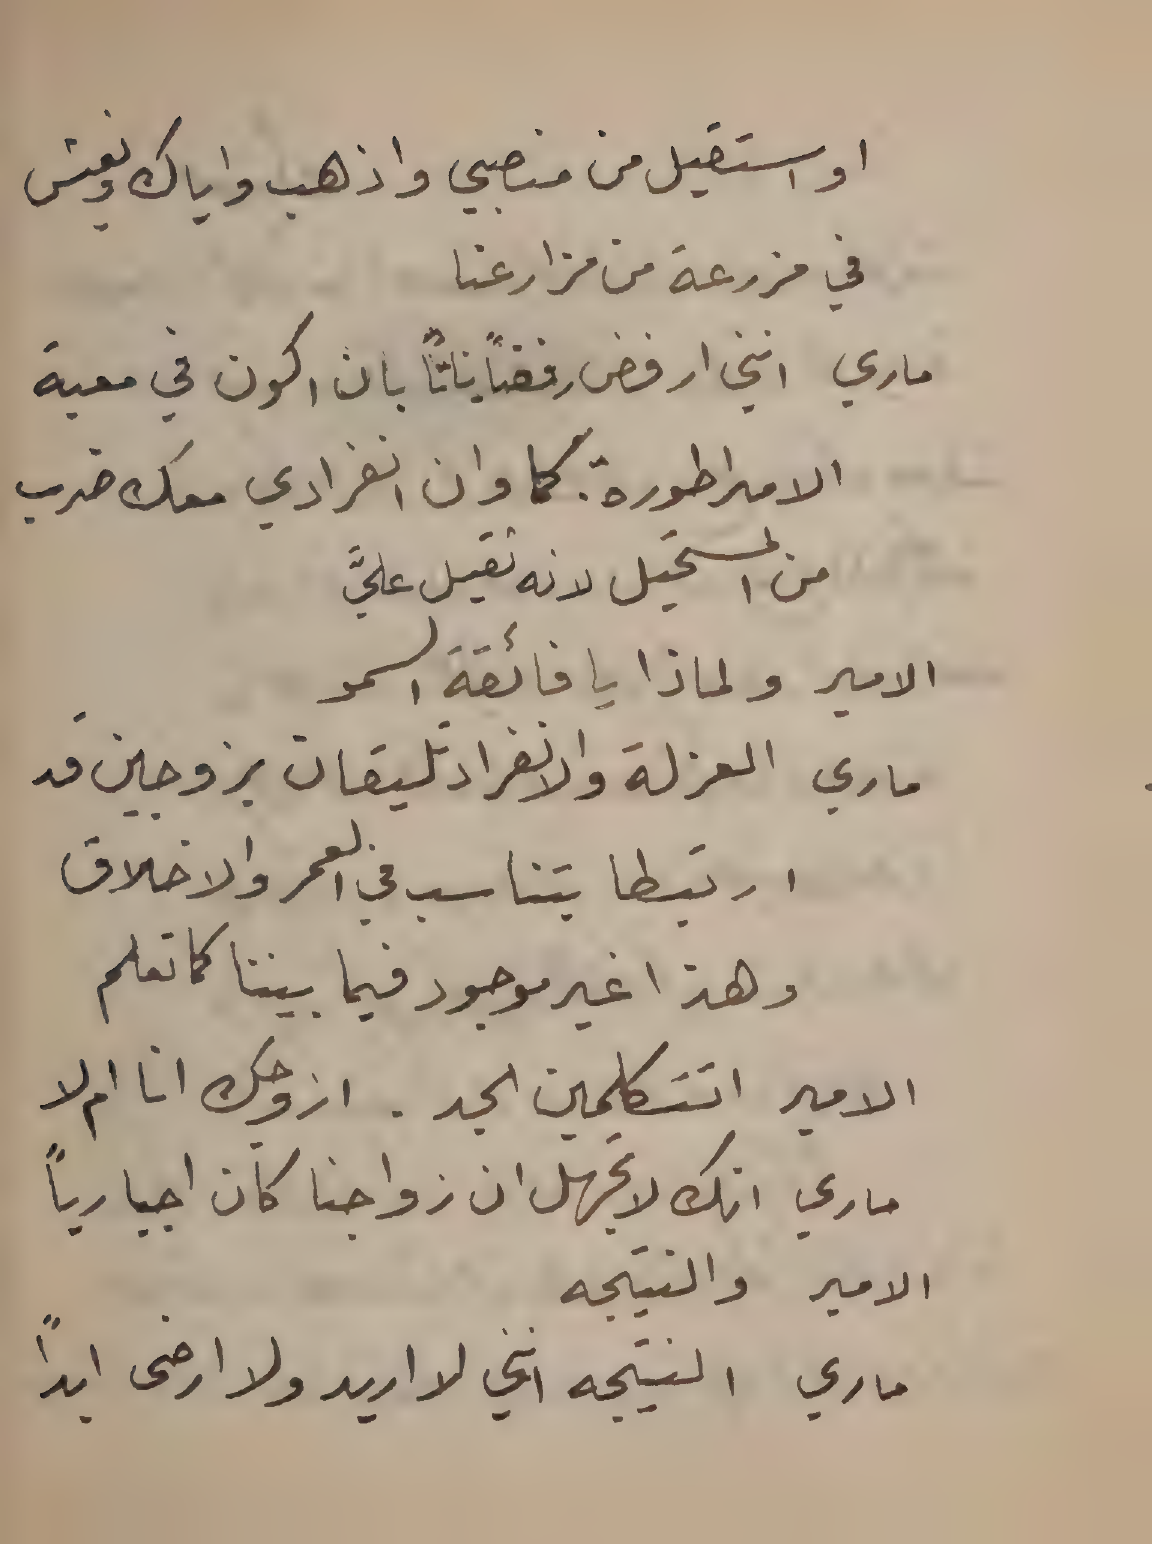 او استقيل من منصبي واذهب واياك ونعيش
في مزرعة من مزارعنا
ماري انني ارفض رفضاً باتاً بان اكون في معية
الامبراطورة. كما وان انفرادي معك ضرب
من المستحيل لانه ثقيل عليَّ
الامير ولماذا يا فائقة السمو
ماري العزلة والانفراد تليقان بزوجين قد
ارتبطا بتناسب في العمر والاخلاق
وهذا غير موجود فيما بيننا كما تعلم
الامير اتتكلمين الجد . ازوجك انا ام لا
ماري انك لا تجهل ان زواجنا كان اجبارياً
الامير والنتيجه
ماري النتيجه انني لا اريد ولا ارضى ابداً